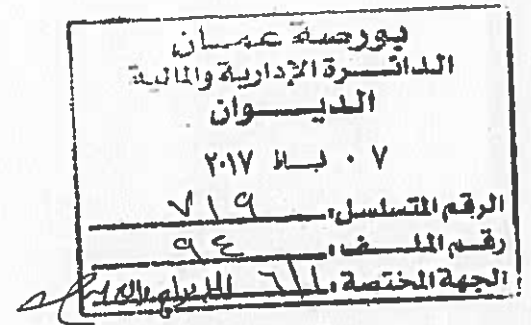 بورصة عمان
الدائرة الإدارية والمالية
الديوان
٠٧ ٢٠١٧
الرقم المتسلسل: ٧١٩
رقم الملف: ٩٤
الجهة المختصة: